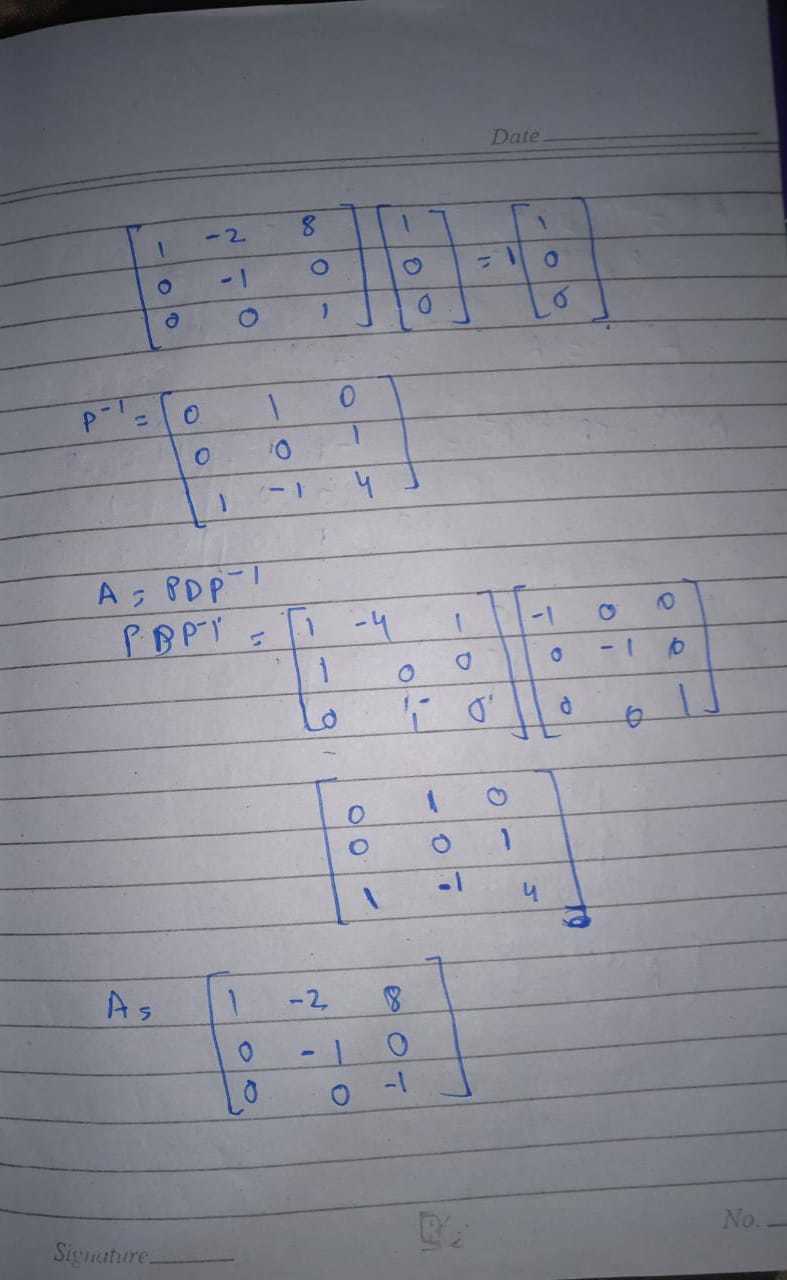 Date
1 -2 8 1 1
0 -1 0 0 = 1 0
0 0 1 0 0
P-1 = 0 1 0
0 0 1
1 -1 4
A = PDP-1
P.BP-1 = 1 -4 1 -1 0 0
1 0 0 0 -1 0
0 1 0 0 0 1
0 1 0
0 0 1
1 -1 4
A = 1 -2 8
0 -1 0
0 0 -1
Signature No.